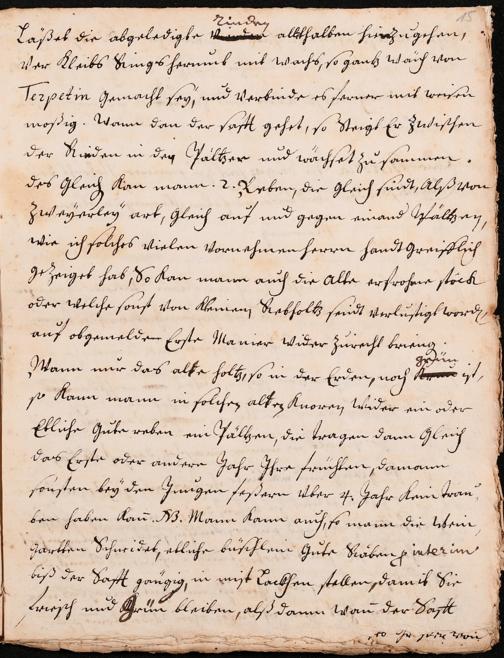 15
Rinden
Laßet die abgeledigte allthalben hinzugehen,
Ver Kleibs Rings herumb mit wachs, so gantz waich von
Terpetin gemacht sey, und verbinde es ferner mit weisen
moßig. Wann dan der safft gehet, so steigt Er zwischen
der Rinden in den Pältzer und wachset zusammen.
des Gleich Kan mann 2. Reben, die Gleich sindt, Alß von
Zweyerley art, Gleich auf und gegen einand Pältzen,
wie ich solches vielen Vornehmen herrn handtgreifflich
gezeiget hab, So Kan mann auch die Alte erfrohrne stöck
oder welche sonst von Kleinen Rebholtz seindt verlustigt word,
auf obgemelden Erste Manier wider zurecht brieng.
grün
Wann nur das alte holtz, so in der Erden, noch ist,
so Kann mann in solchen alten Knoren wider ein oder
Etliche Gute reben ein Pältzen, die tragen dann Gleich
das Erste oder andere Jahr Ihre früchten, da mann
sonsten bey den Jungen fexern über 4. Jahr Kein trau
ben haben Kan. NB. Mann Kann auch, so mann die Wein
gartten Schneidet, etliche büschlein Gute Räben p interim
biß der Safft gängig, in mist lachen stellen, damit Sie
frisch und Grün bleiben, alß dann wan der Safft